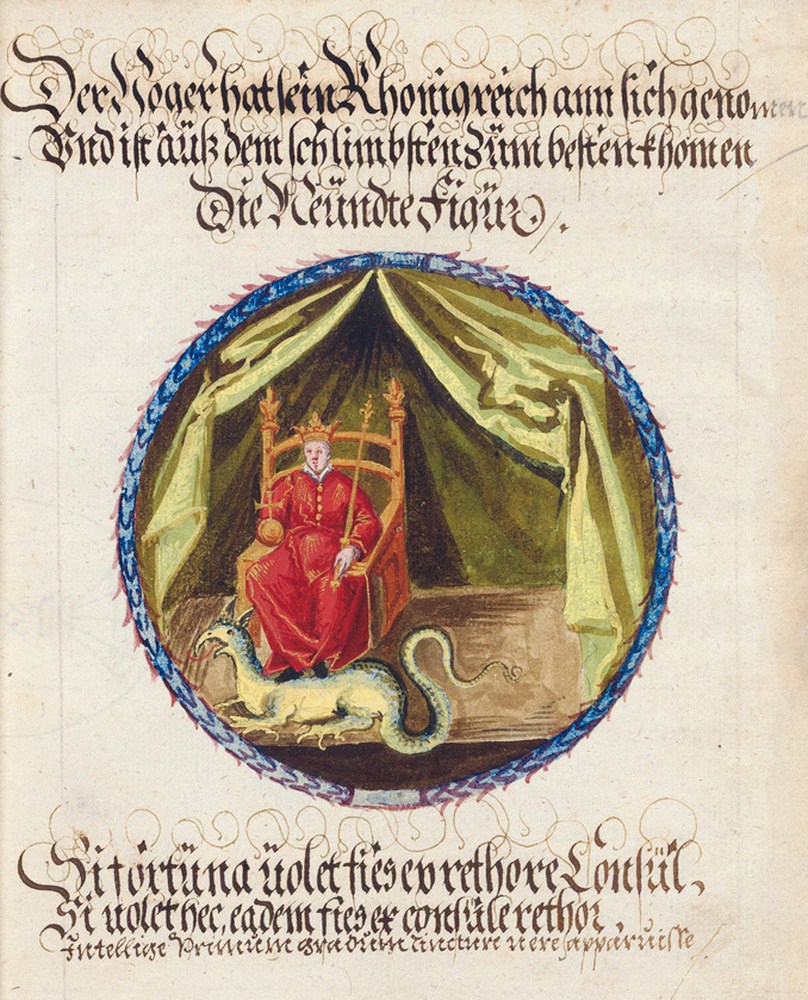 Der Voger hat sein Khonigreich ann sich genomen
Vnd ist aüß dem schlimbsten Züm besten khomen
Die Neündte Figür.
Si fortüna üolet fies ex rethore Consül,
Si uolet hec, eadem fies ex consüle rethor,
Intellige Primum gradum tincture uere apparuisse